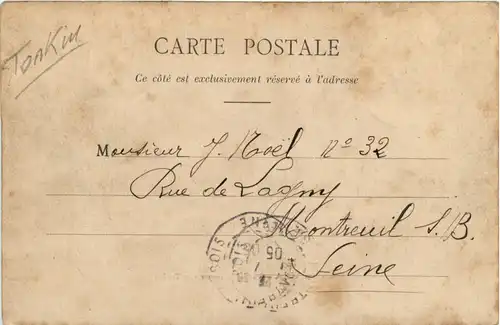 Tonkin
CARTE POSTALE
Ce côté est exclusivement réservé à l'adresse
Monsieur J. Noël No 32
Rue de Lagny
Montreuil S./B.
Seine
05